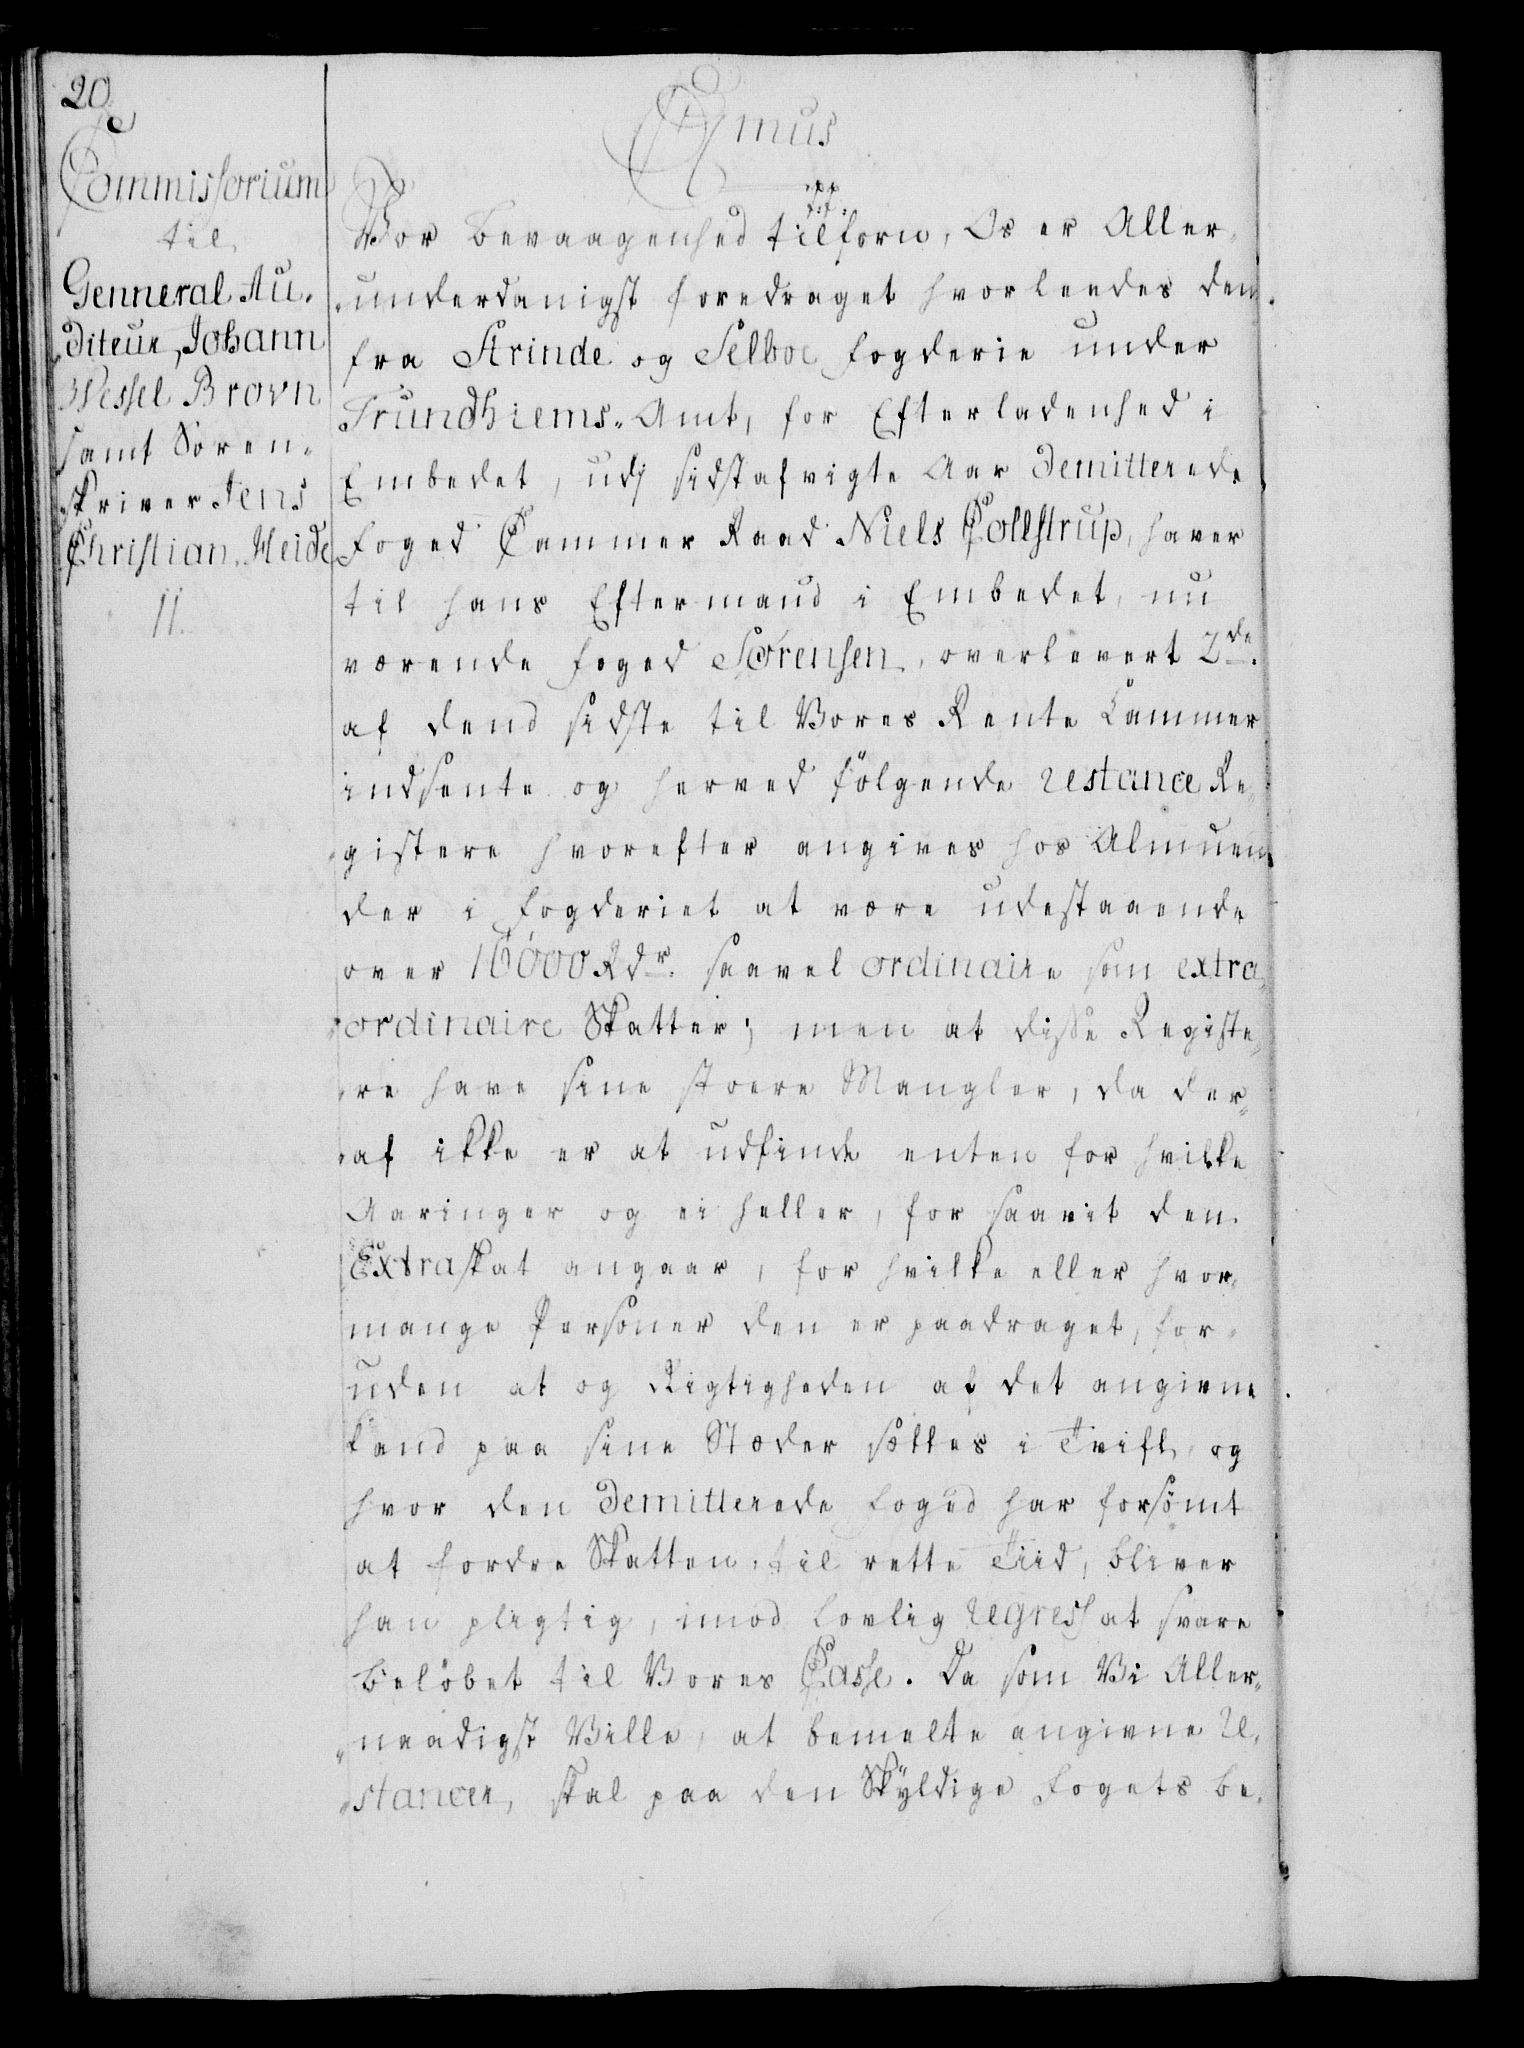 20.
Commissorium
til
Genneral Au-
diteur, Johann
Wessel Brovn
samt Soren-
skriver Jens
Christian Heide
11.
C7mus
p.p.
Vor bevaagenhed tilforn, Os er Aller-
underdanigst foredraget hvorleedes den
fra Strinde og Selboe fogderie under
Trundhiems-Amt, for Efterladenhed i
Embedet, udj sidstafvigte Aar demitterede
foged Cammer Raad Niels Collstrup, haver
til hans Eftermand i Embedet, nu
værende foged Sørensen, overlevert 2de
af dend sidste til Vores Rente Cammer
indsente og herved fölgende restance Re-
gistere hvorefter angives hos Almuen
der i fogderiet at være udestaaende
over 16000 Rdr. saavel ordinaire som extra
ordinaire Skatter; men at disse Registe-
re have sine stoere Mangler, da der-
af ikke er at udfinde enten for hvilke
Aaringer og ei heller, for saavit den
Extraskat angaar, for hvilke eller hvor-
mange Personer den er paadraget, for-
uden at og Rigtigheden af det angivne
kand paa sine Stæder sættes i Tvifl, og
hvor den demitterede foged har forsömt
at fordre Skatten til rette Tiid, bliver
han pligtig, imod lovlig regress at svare
belöbet til Vores Casse. Da som Vi Aller-
naadigst Ville, at bemelte angivne Re-
stancer, skal paa den Skyldige fogets be-